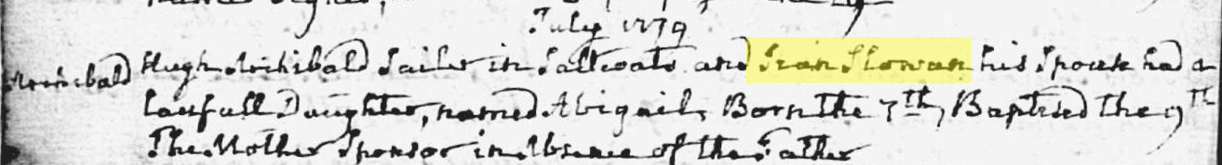 July 1779
Archibald Hugh Archibald Sailer in Saltcoats and Jean Slowan his Spouse had a
lawfull Daughter, named Abigail, Born the 7th, Baptised the 9th
The Mother Sponsor in Absence of the Father